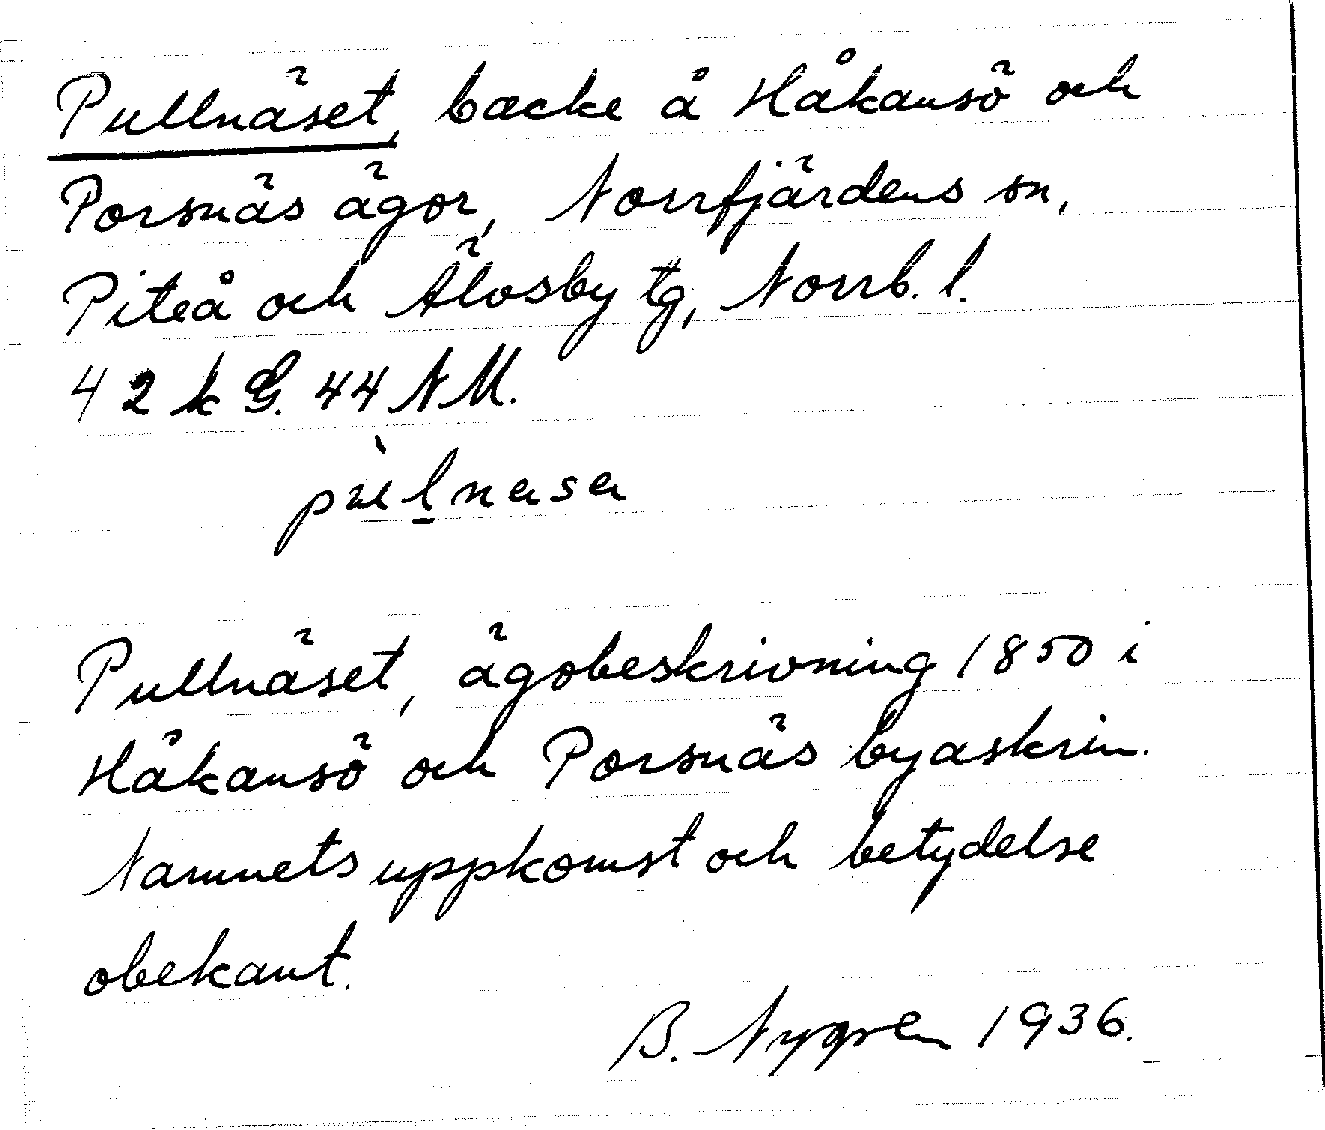 Pullnäset, backe å Håkansö och
Porsnäs ägor, Norrfjärdens sn,
Piteå och Älvsby tg, Norrb. l.
42 k G. 44 N M.
Pullnäset, ägobeskrivning 1850 i
Håkansö och Porsnäs byaskrin.
Namnets uppkomst och betydelse
obekant.
B. Nygren 1936.